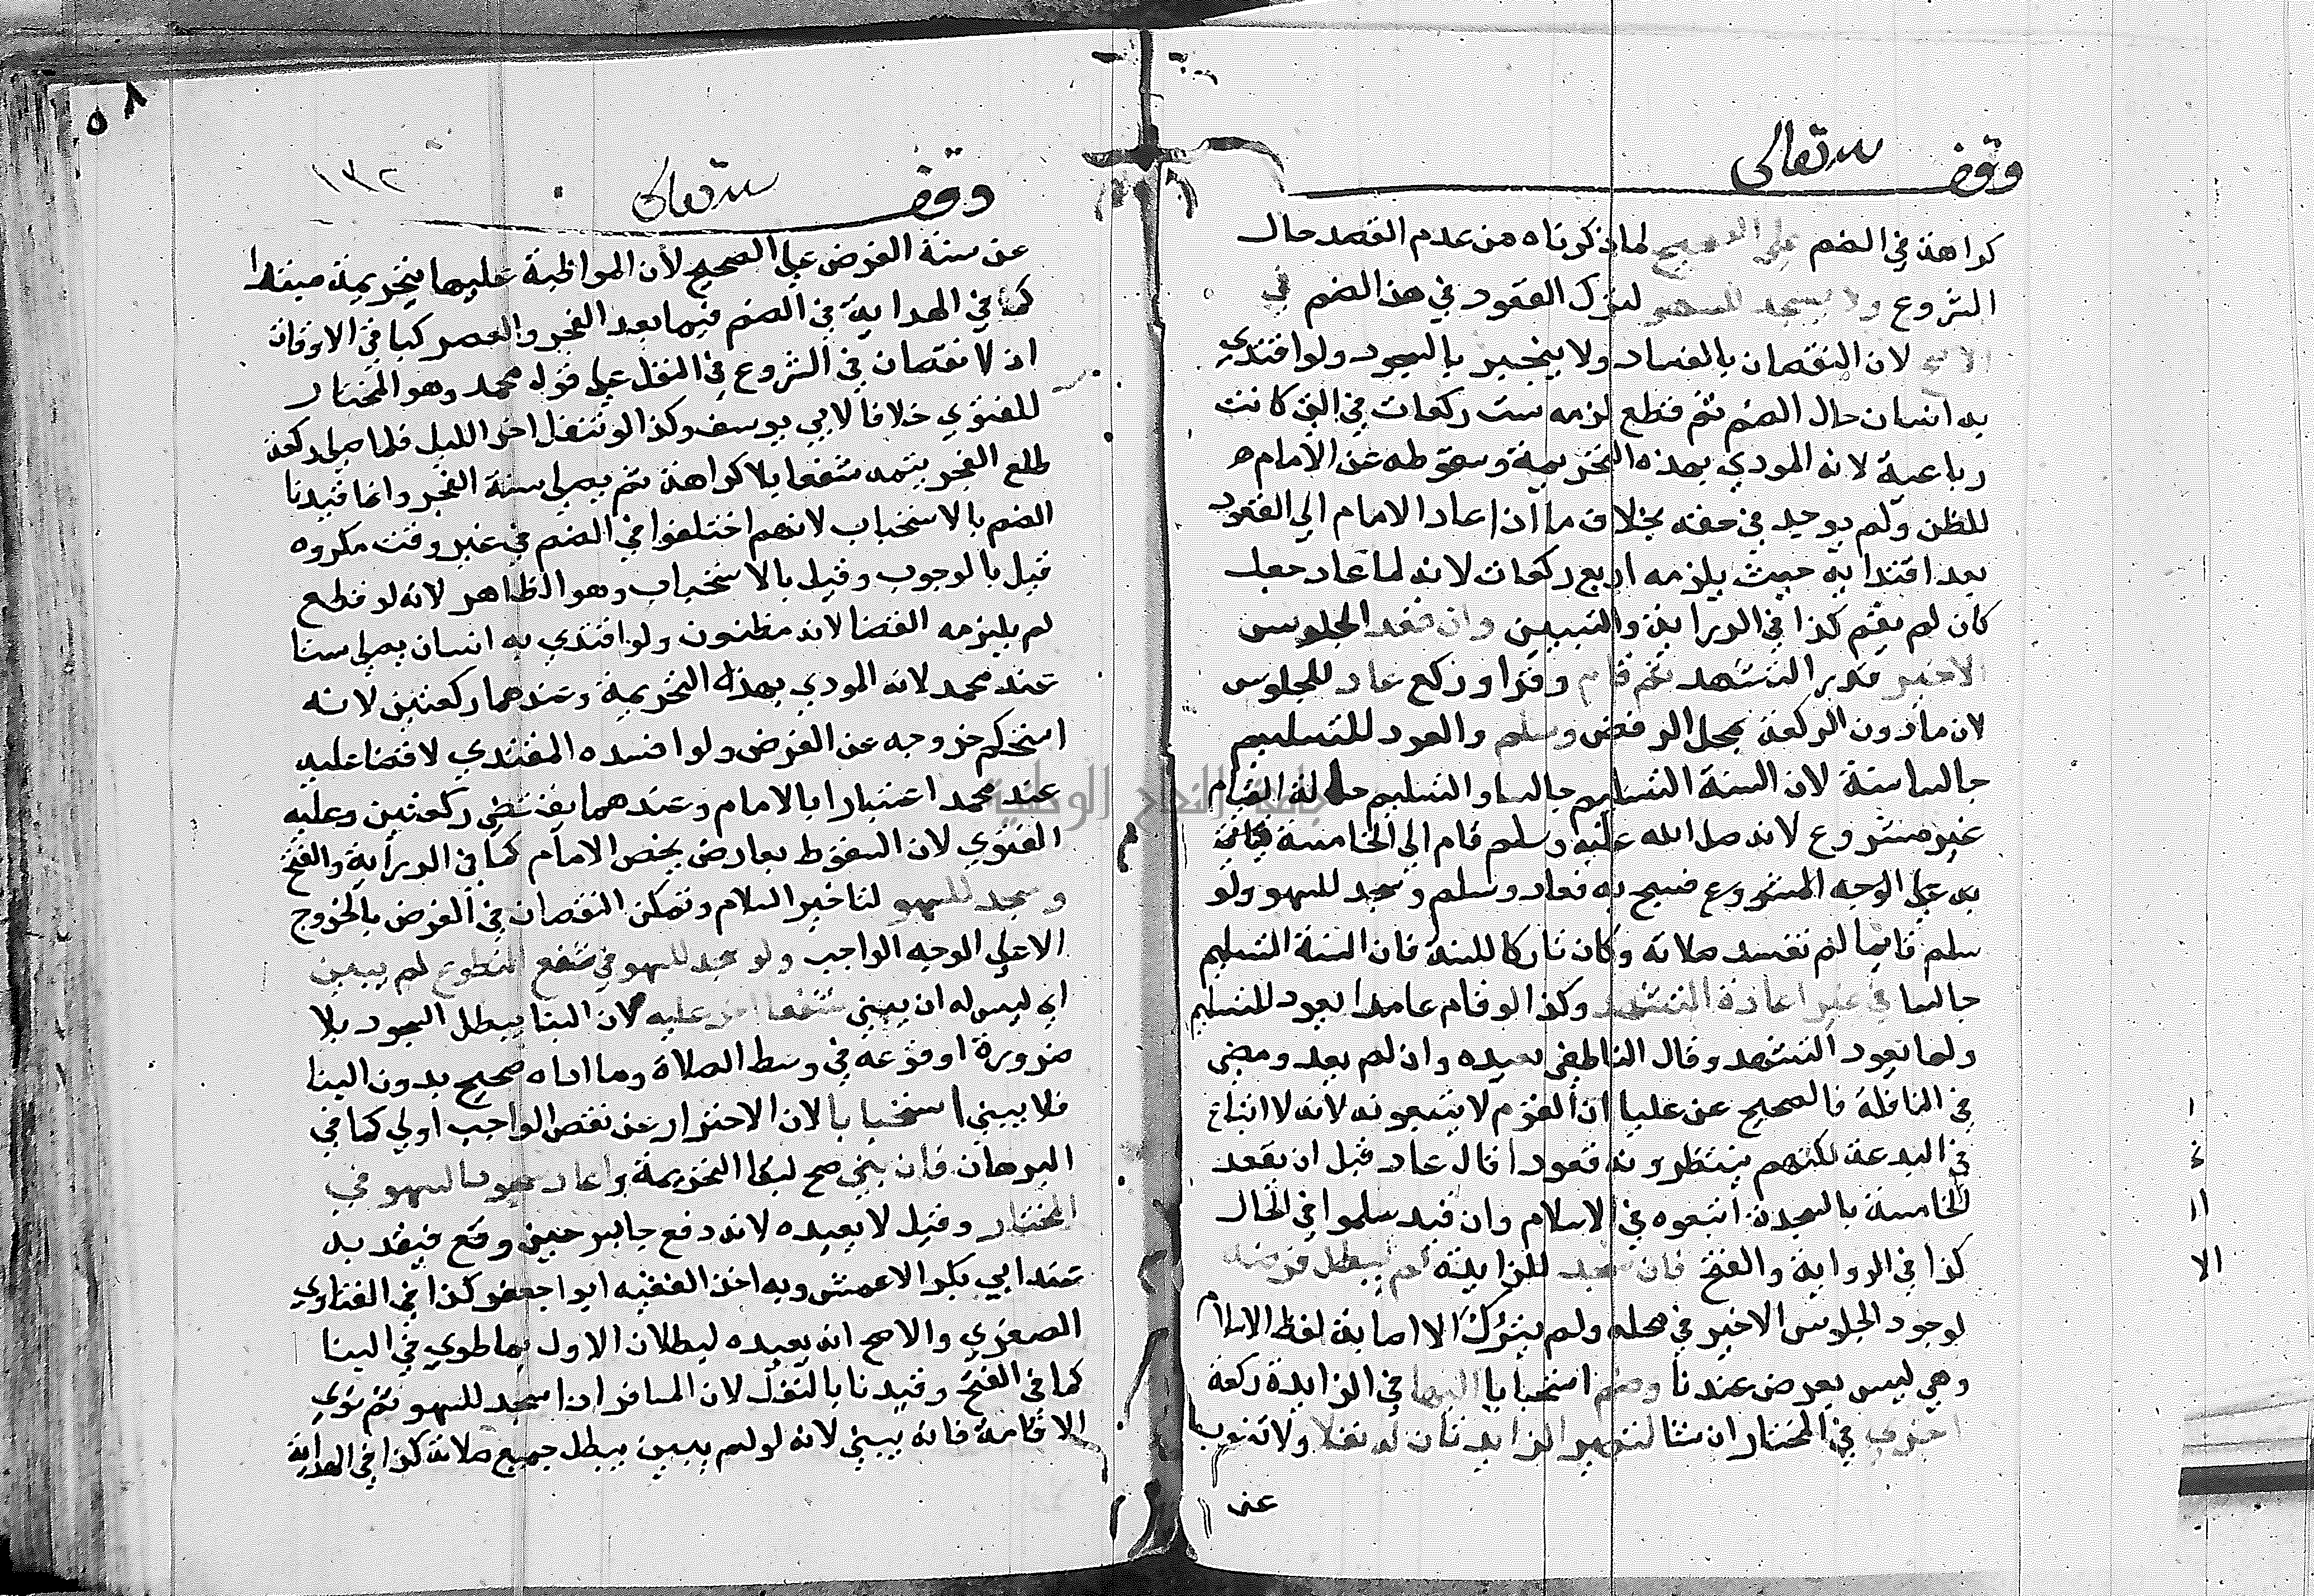 وقف لله تعالى
كراهة في الضم على الصحيح لما ذكرناه من عدم القصد حال
الشروع ولا يسجد للسهو لترك القعود في هذا الضم في
الاصح لان النقصان بالفساد ولا ينجبر بالسجود ولو اقتدي
به انسان حال الضم ثم قطع لزمه ست ركعات في التي كانت
رباعية لانه المودي بهذه التحريمة وسقوطه عن الامام
للظن ولم يوجد في حقه بخلاف ما اذا عاد الامام الي القعود
بعد اقتدايه حيث يلزمه اربع ركعات لانه لما عاد جعل
كان لم يقم كذا في الدراية والتبيين وان قعد الجلوس
الاخير قدر التشهد ثم قام وقرا وركع عاد للجلوس
لان ما دون الركعة بمحل الرفض وسلم والعود للتسليم
جالسا سنة لان السنة التسليم جالسا والتسليم حالة القيام
غير مشروع لانه صلي الله عليه وسلم قام الي الخامسة
به علي الوجه المشروع فسبح به فعاد وسلم وسجد للسهو ولو
سلم قايما لم تفسد صلاته وكان تاركا للسنة فان السنة التسليم
جالسا في غير اعادة التشهد وكذا لو قام عامدا يعود للتسليم
ولما يعود التشهد وقال الناطفي يعيده وان لم يعد ومضي
في النافلة فالصحيح عن علمايا ان القوم لا يتبعونه لانه لا اتباع
في البدعة لكنهم ينتظرونه قعودا فان عاد قبل ان يقعد
للخامسة بالسجدة اتبعوه في الاسلام وان قيد سلموا في الحال
كذا في الرواية والفتح فان سجد للزايدة لم يبطل فرضه
لوجود الجلوس الاخير في محله ولم يترك الا اصابة لفظ الاسلام
وهي ليس بفرض عندنا وضم استحبابا اليها في الزايدة ركعة
اخري في المختار ان شا لتصير الزايدتان له نفلا ولا تنوب
عن
وقف لله تعالى
١٣٢
٥٨
عن سنة الفرض علي الصحيح لان المواظبة عليها بتحريمة مبتداة
كما في الهداية في الضم فيما بعد الفجر والعصر كما في الاوقات
اذ لا نقصان في الشروع في النفل علي قول محمد وهو المختار
للفتوي خلافا لابي يوسف وكذا لو تنفل اخر الليل فلما صلي ركعة
طلع الفجر يتمه شفعا بلا كراهة ثم يصلي سنة الفجر وانما قيدنا
الضم بالاستحباب لانهم اختلفوا في الضم في غير وقت مكروه
قيل بالوجوب وقيل بالاستحباب وهو الظاهر لانه لو قطع
لم يلزمه القضا لانه مظنون ولو اقتدي به انسان يصلي ستا
عند محمد لانه المودي بهذه التحريمة وعندهما ركعتين لانه
استحكم خروجه عن الفرض ولو افسده المقتدي لا قضا عليه
عند محمد اعتبارا بالامام وعندهما يقضي ركعتين وعليه
الفتوي لان السقوط بعارض يخص الامام كما في الدراية والفتح
وسجد للسهو لتاخير السلام وتمكن النقصان في الفرض بالخروج
الا علي الوجه الواجب ولو سجد للسهو في شفع التطوع لم يبين
اي ليس له ان يبني شفعا اخر عليه لان البنا يبطل السجود بلا
ضرورة او وقوعه في وسط الصلاة وما اداه صحيح بدون البنا
فلا يبني استحبابا لان الاحتراز عن نقض الواجب اولي كما في
البرهان فان بني صح لبقا التحريمة واعاد سجود السهو في
المختار وقيل لا يعيده لانه دفع جابر حين وقع فيعتد به
عند ابي بكر الاعمش وبه اخذ الفقيه ابوا جعفر كذا في الفتاوي
الصغري والاصح انه يعيده لبطلان الاول بما طوي في البنا
كما في الفتح وقيدنا بالتنفل لان المسافر اذا سجد للسهو ثم نوي
الاقامة فانه يبني لانه لو لم يبين يبطل جميع صلاته كذا في الهداية
جامعة النجاح الوطنية